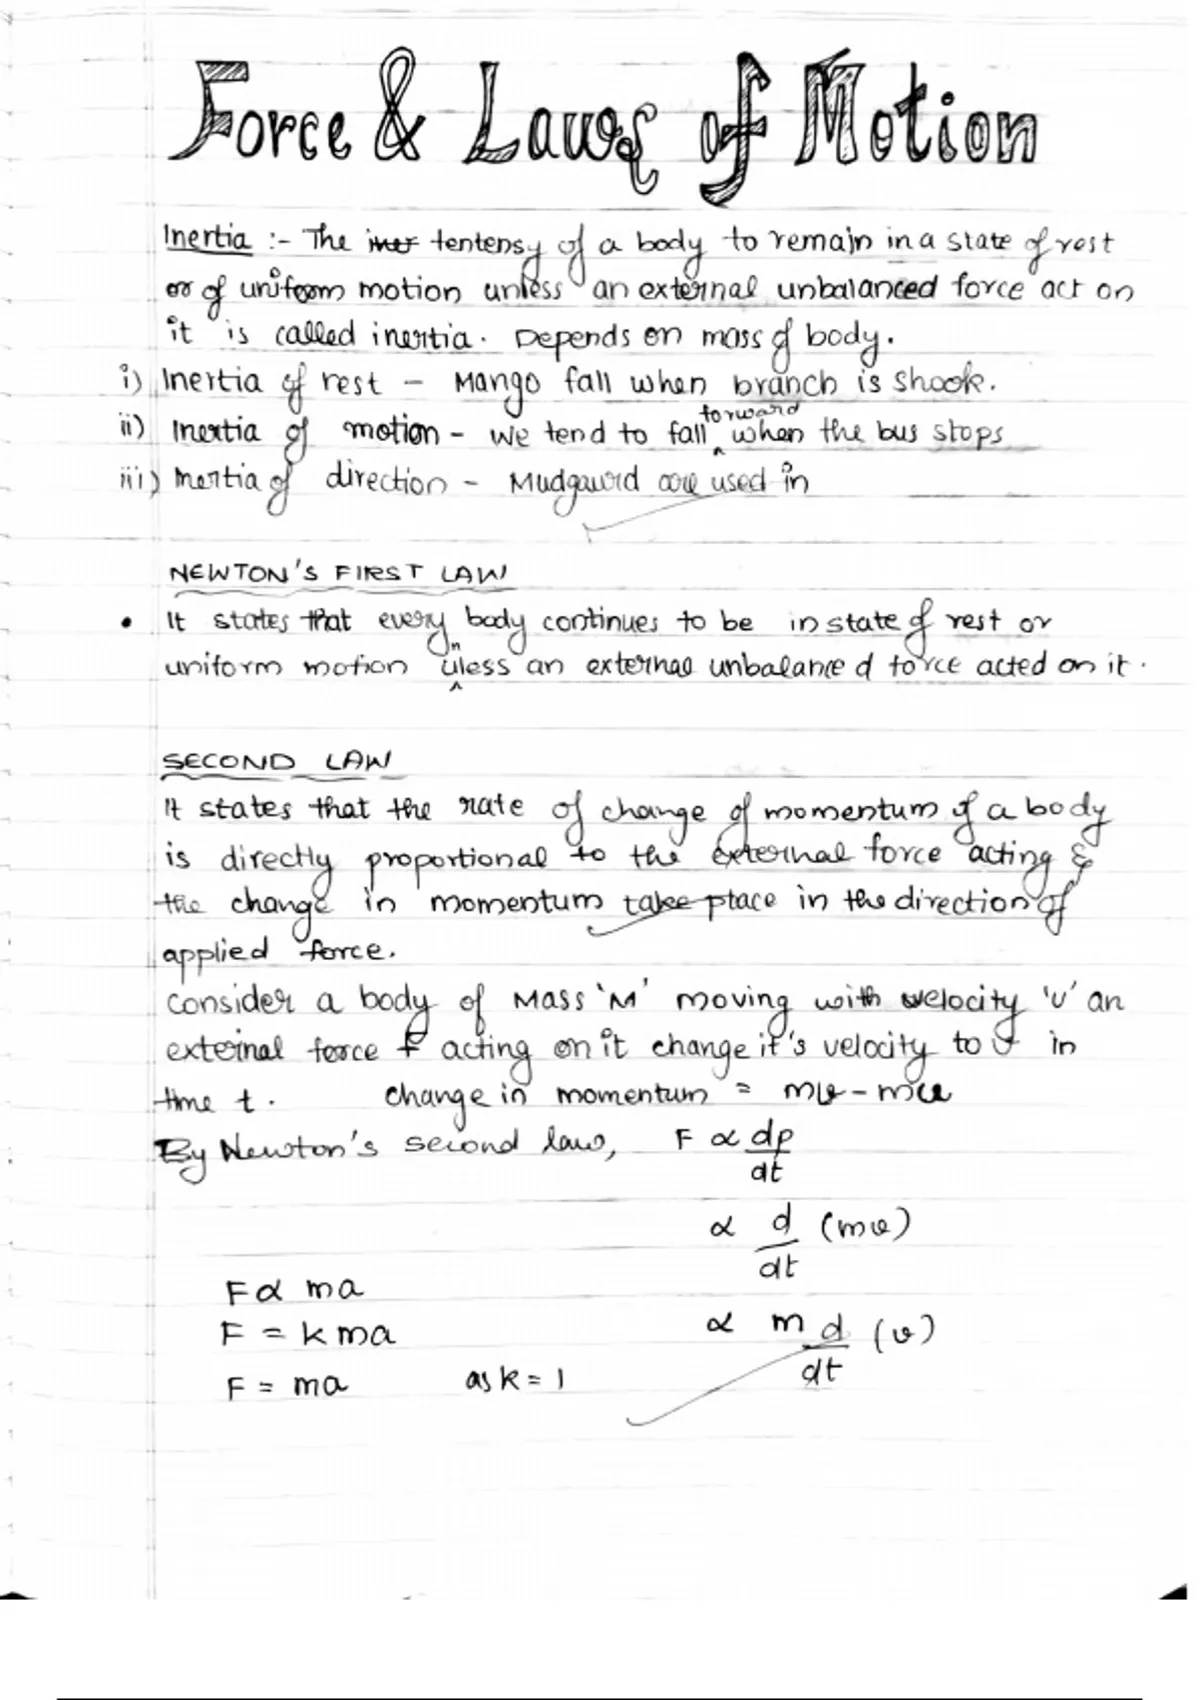 Force & Laws of Motion
Inertia :- The iner tentensy of a body to remain in a state of rest
or of uniform motion unless an external unbalanced force act on
it is called inertia. Depends on mass of body.
i) Inertia of rest - Mango fall when branch is shook.
ii) Inertia of motion - We tend to fall forward when the bus stops
iii) Inertia of direction - Mudgaurd are used in
NEWTON'S FIRST LAW
• It states that every body continues to be in state of rest or
uniform motion unless an external unbalanced force acted on it.
SECOND LAW
It states that the rate of change of momentum of a body
is directly proportional to the external force acting &
the change in momentum take place in the direction of
applied force.
Consider a body of Mass 'M' moving with velocity 'u' an
external force F acting on it change it's velocity to v in
time t. change in momentum = mv - mu
By Newton's second law, F ∝ dp/dt
∝ d/dt (mv)
F ∝ ma
F = k ma
∝ m d/dt (v)
F = ma as k = 1